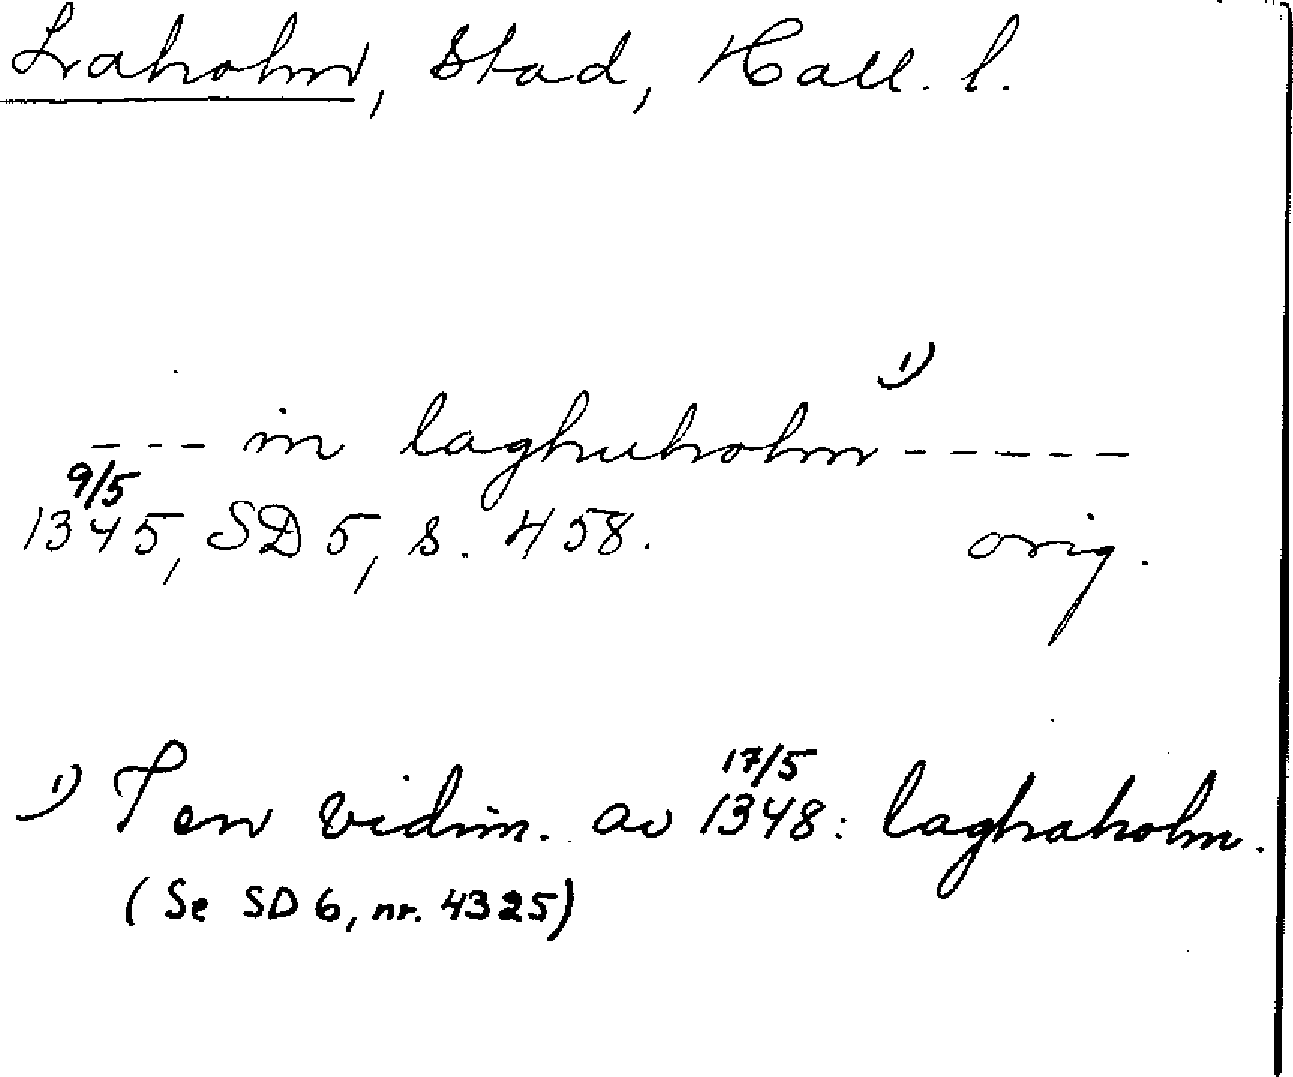 Laholm, stad, Hall. l.
--- in laghuholm ¹⁾ -----
9/5
1345, SD 5, s. 458. orig.
¹⁾ I en vidim. av 17/5 1348: laghaholm.
(Se SD 6, nr. 4325)